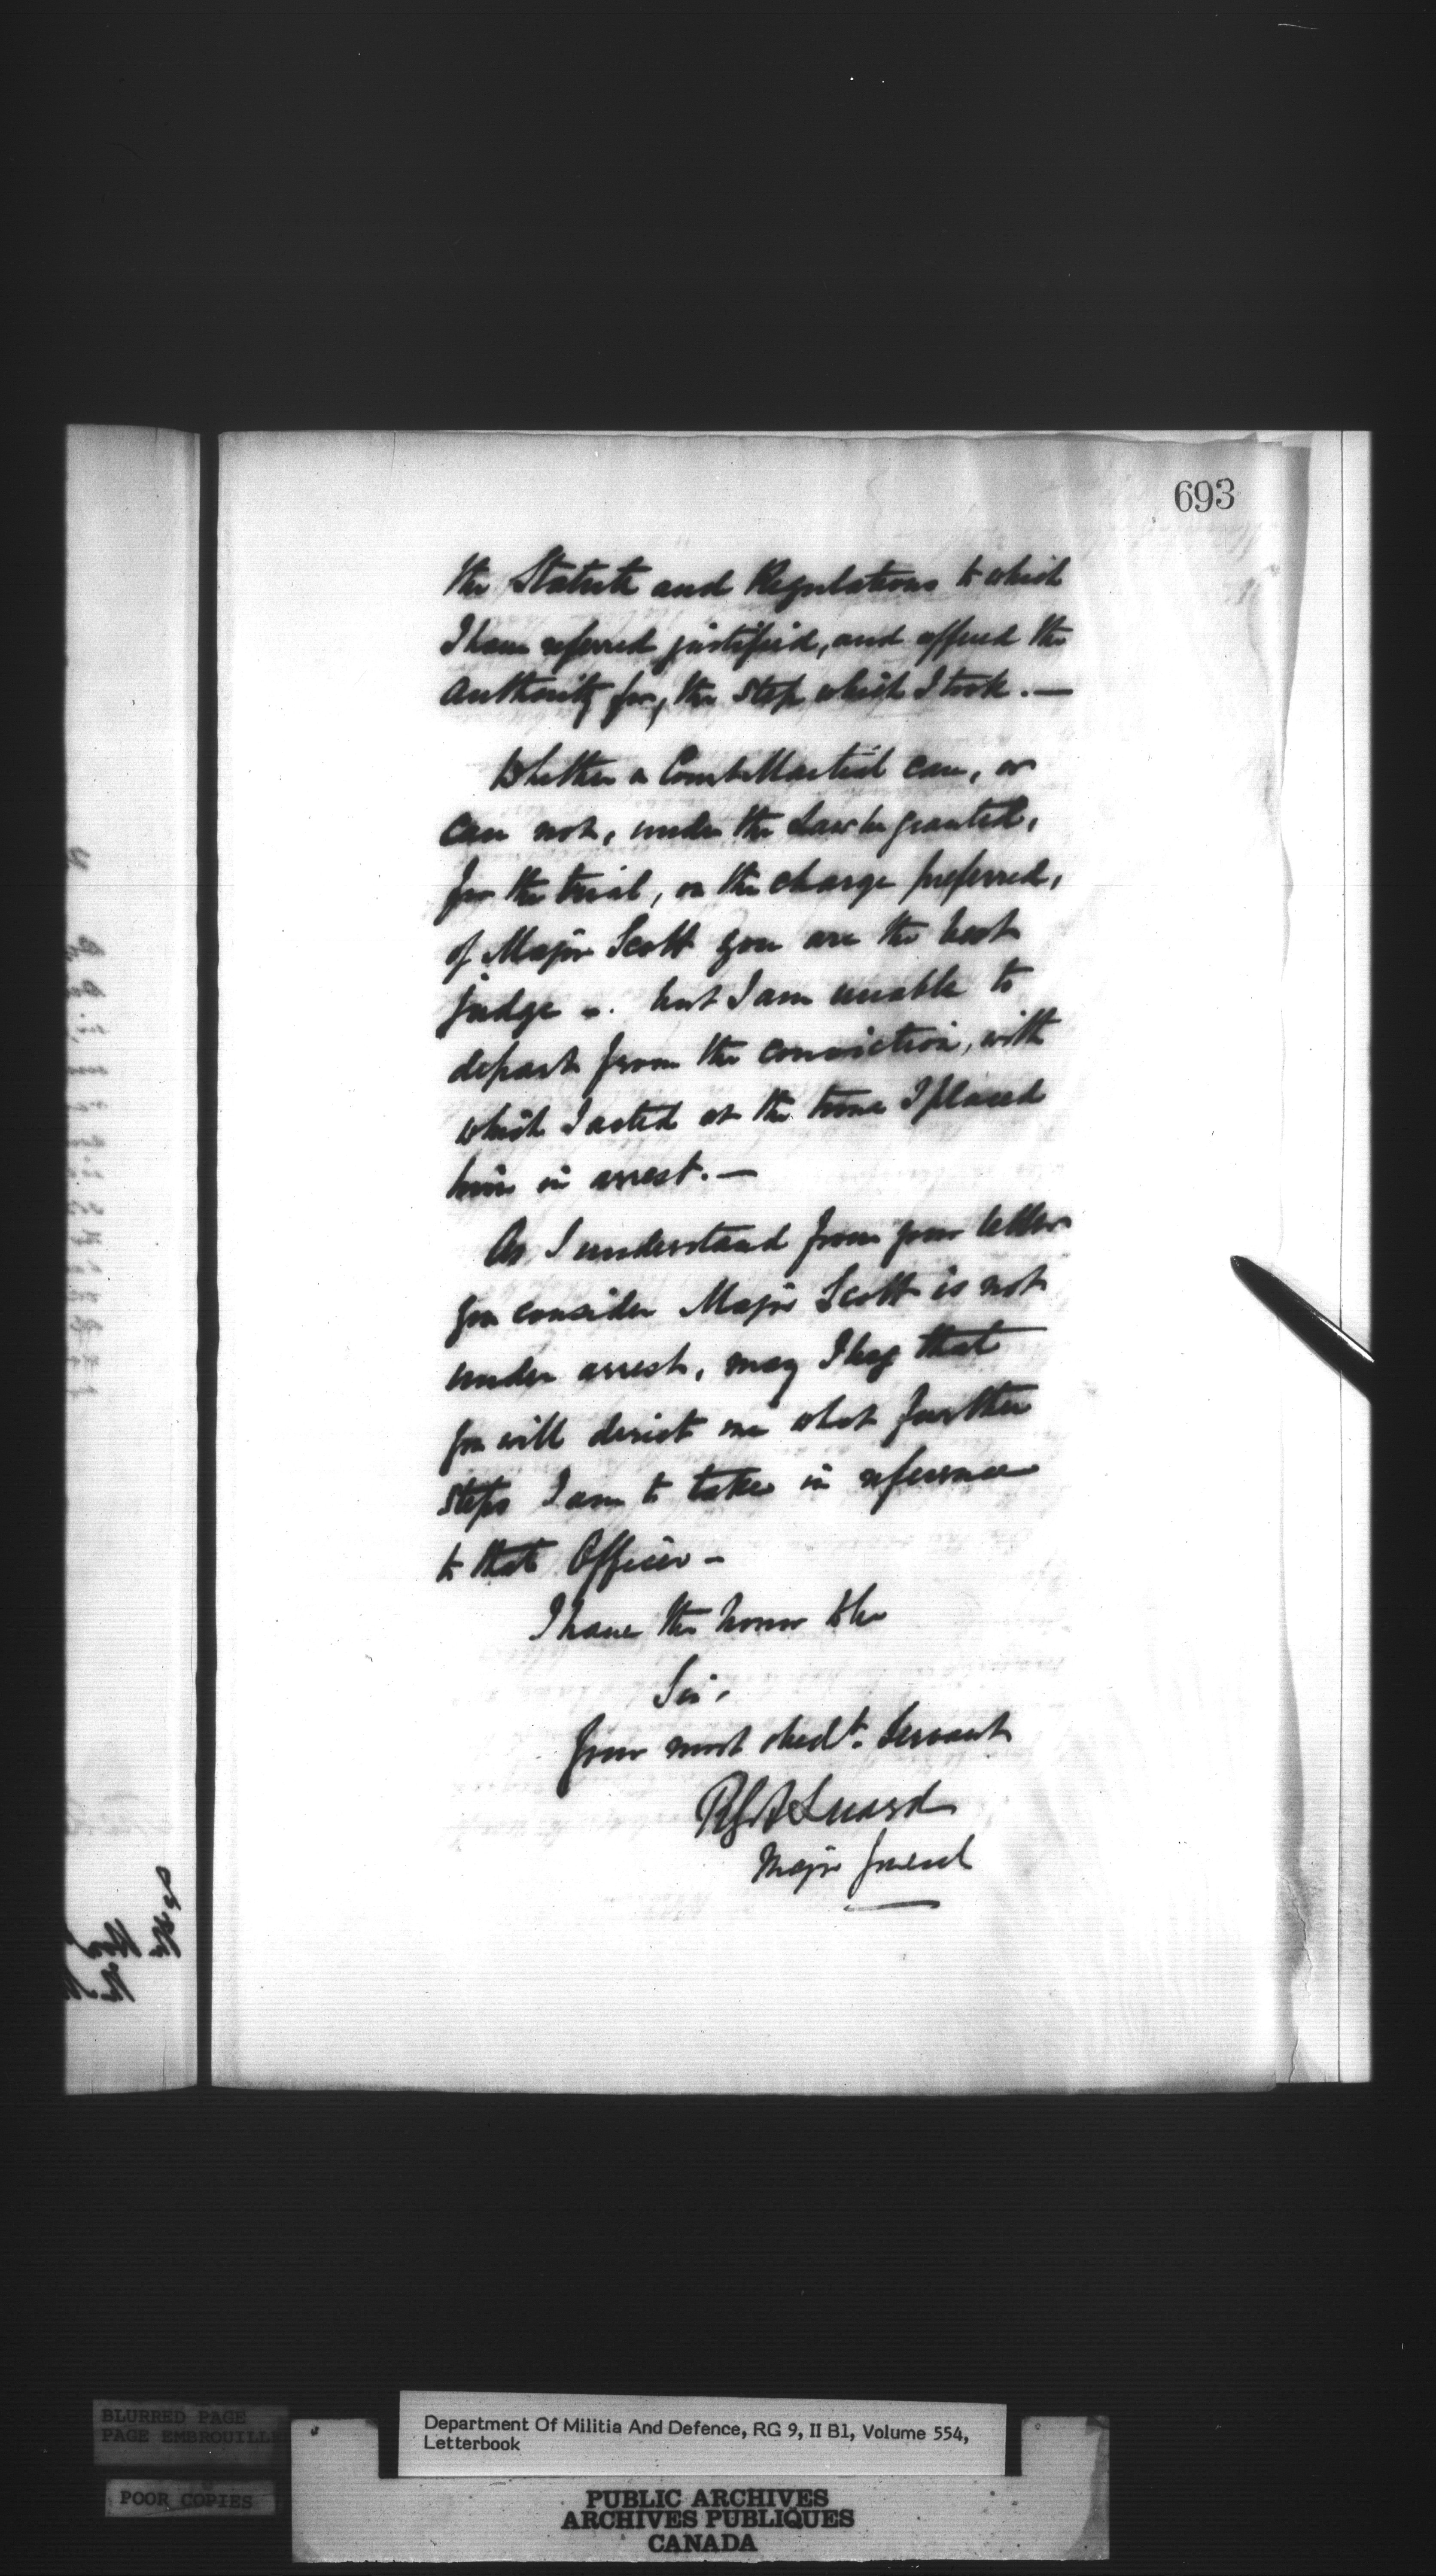 693
the Statute and Regulations to which
I have referred justified, and afford the
authority for, the step which I took. —
Whether a Court Martial can, or
can not, under the Law be granted,
for the trial, on the charge preferred,
of Major Scott you are the best
judge -. but I am unable to
depart from the conviction, with
which I acted at the time I placed
him in arrest. —
As I understand from your letter
you consider Major Scott is not
under arrest, may I beg that
you will direct me what further
steps I am to take in reference
to that Officer -
I have the honor to be
Sir,
Your most obedt. Servant
RGA Luard
Major General
BLURRED PAGE
PAGE EMBROUILLE
POOR COPIES
Department Of Militia And Defence, RG 9, II B1, Volume 554,
Letterbook
PUBLIC ARCHIVES
ARCHIVES PUBLIQUES
CANADA